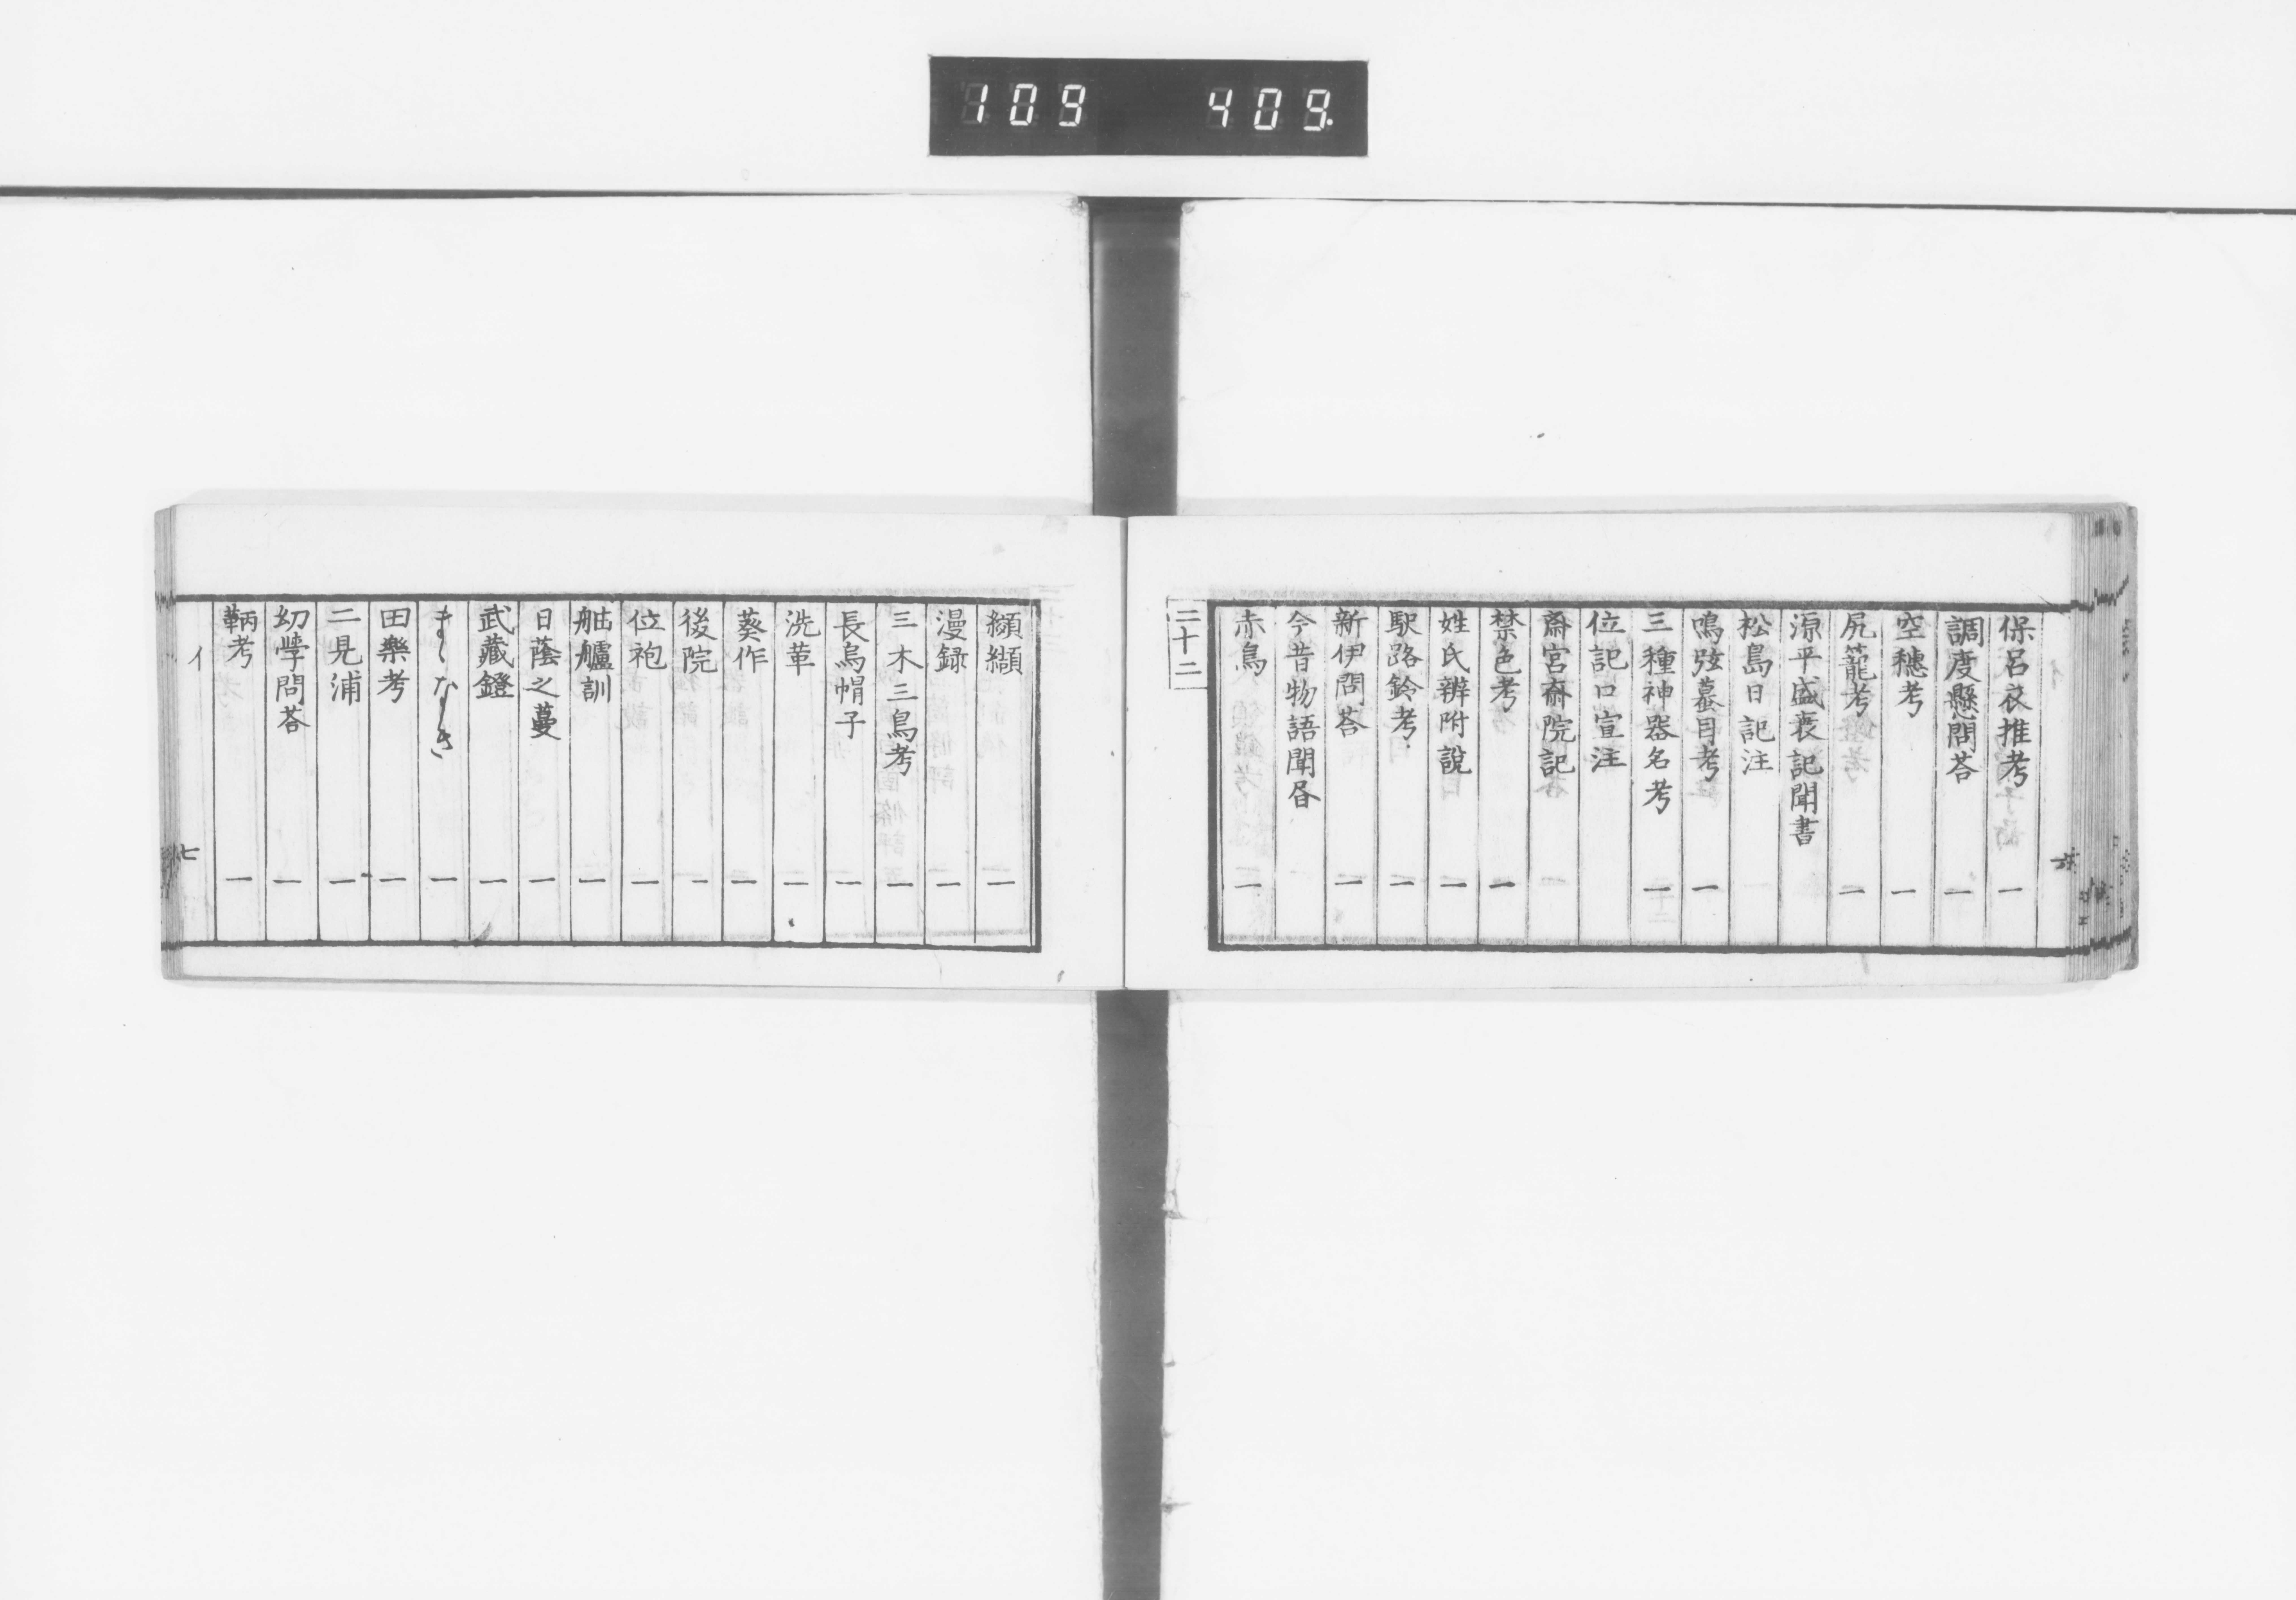 109 409.
保呂衣推考 一
調度懸問荅 一
空穗考 一
尻籠考 一
源平盛衰記聞書
松島日記注
鳴弦蟇目考 一
三種神器名考 一
位記口宣注
齋宮齋院記
禁色考 一
姓氏辨附說 一
駅路鈴考 一
新伊問荅 一
今昔物語聞昏
赤鳥 一
二十二
纐纈 一
漫録 一
三木三鳥考 一
長烏帽子 一
洗革 一
葵作 一
後院 一
位袍 一
舳艫訓 一
日蔭之蔓 一
武藏鐙 一
まゝなき 一
田樂考 一
二見浦 一
幼學問荅 一
鞆考 一
イ 七